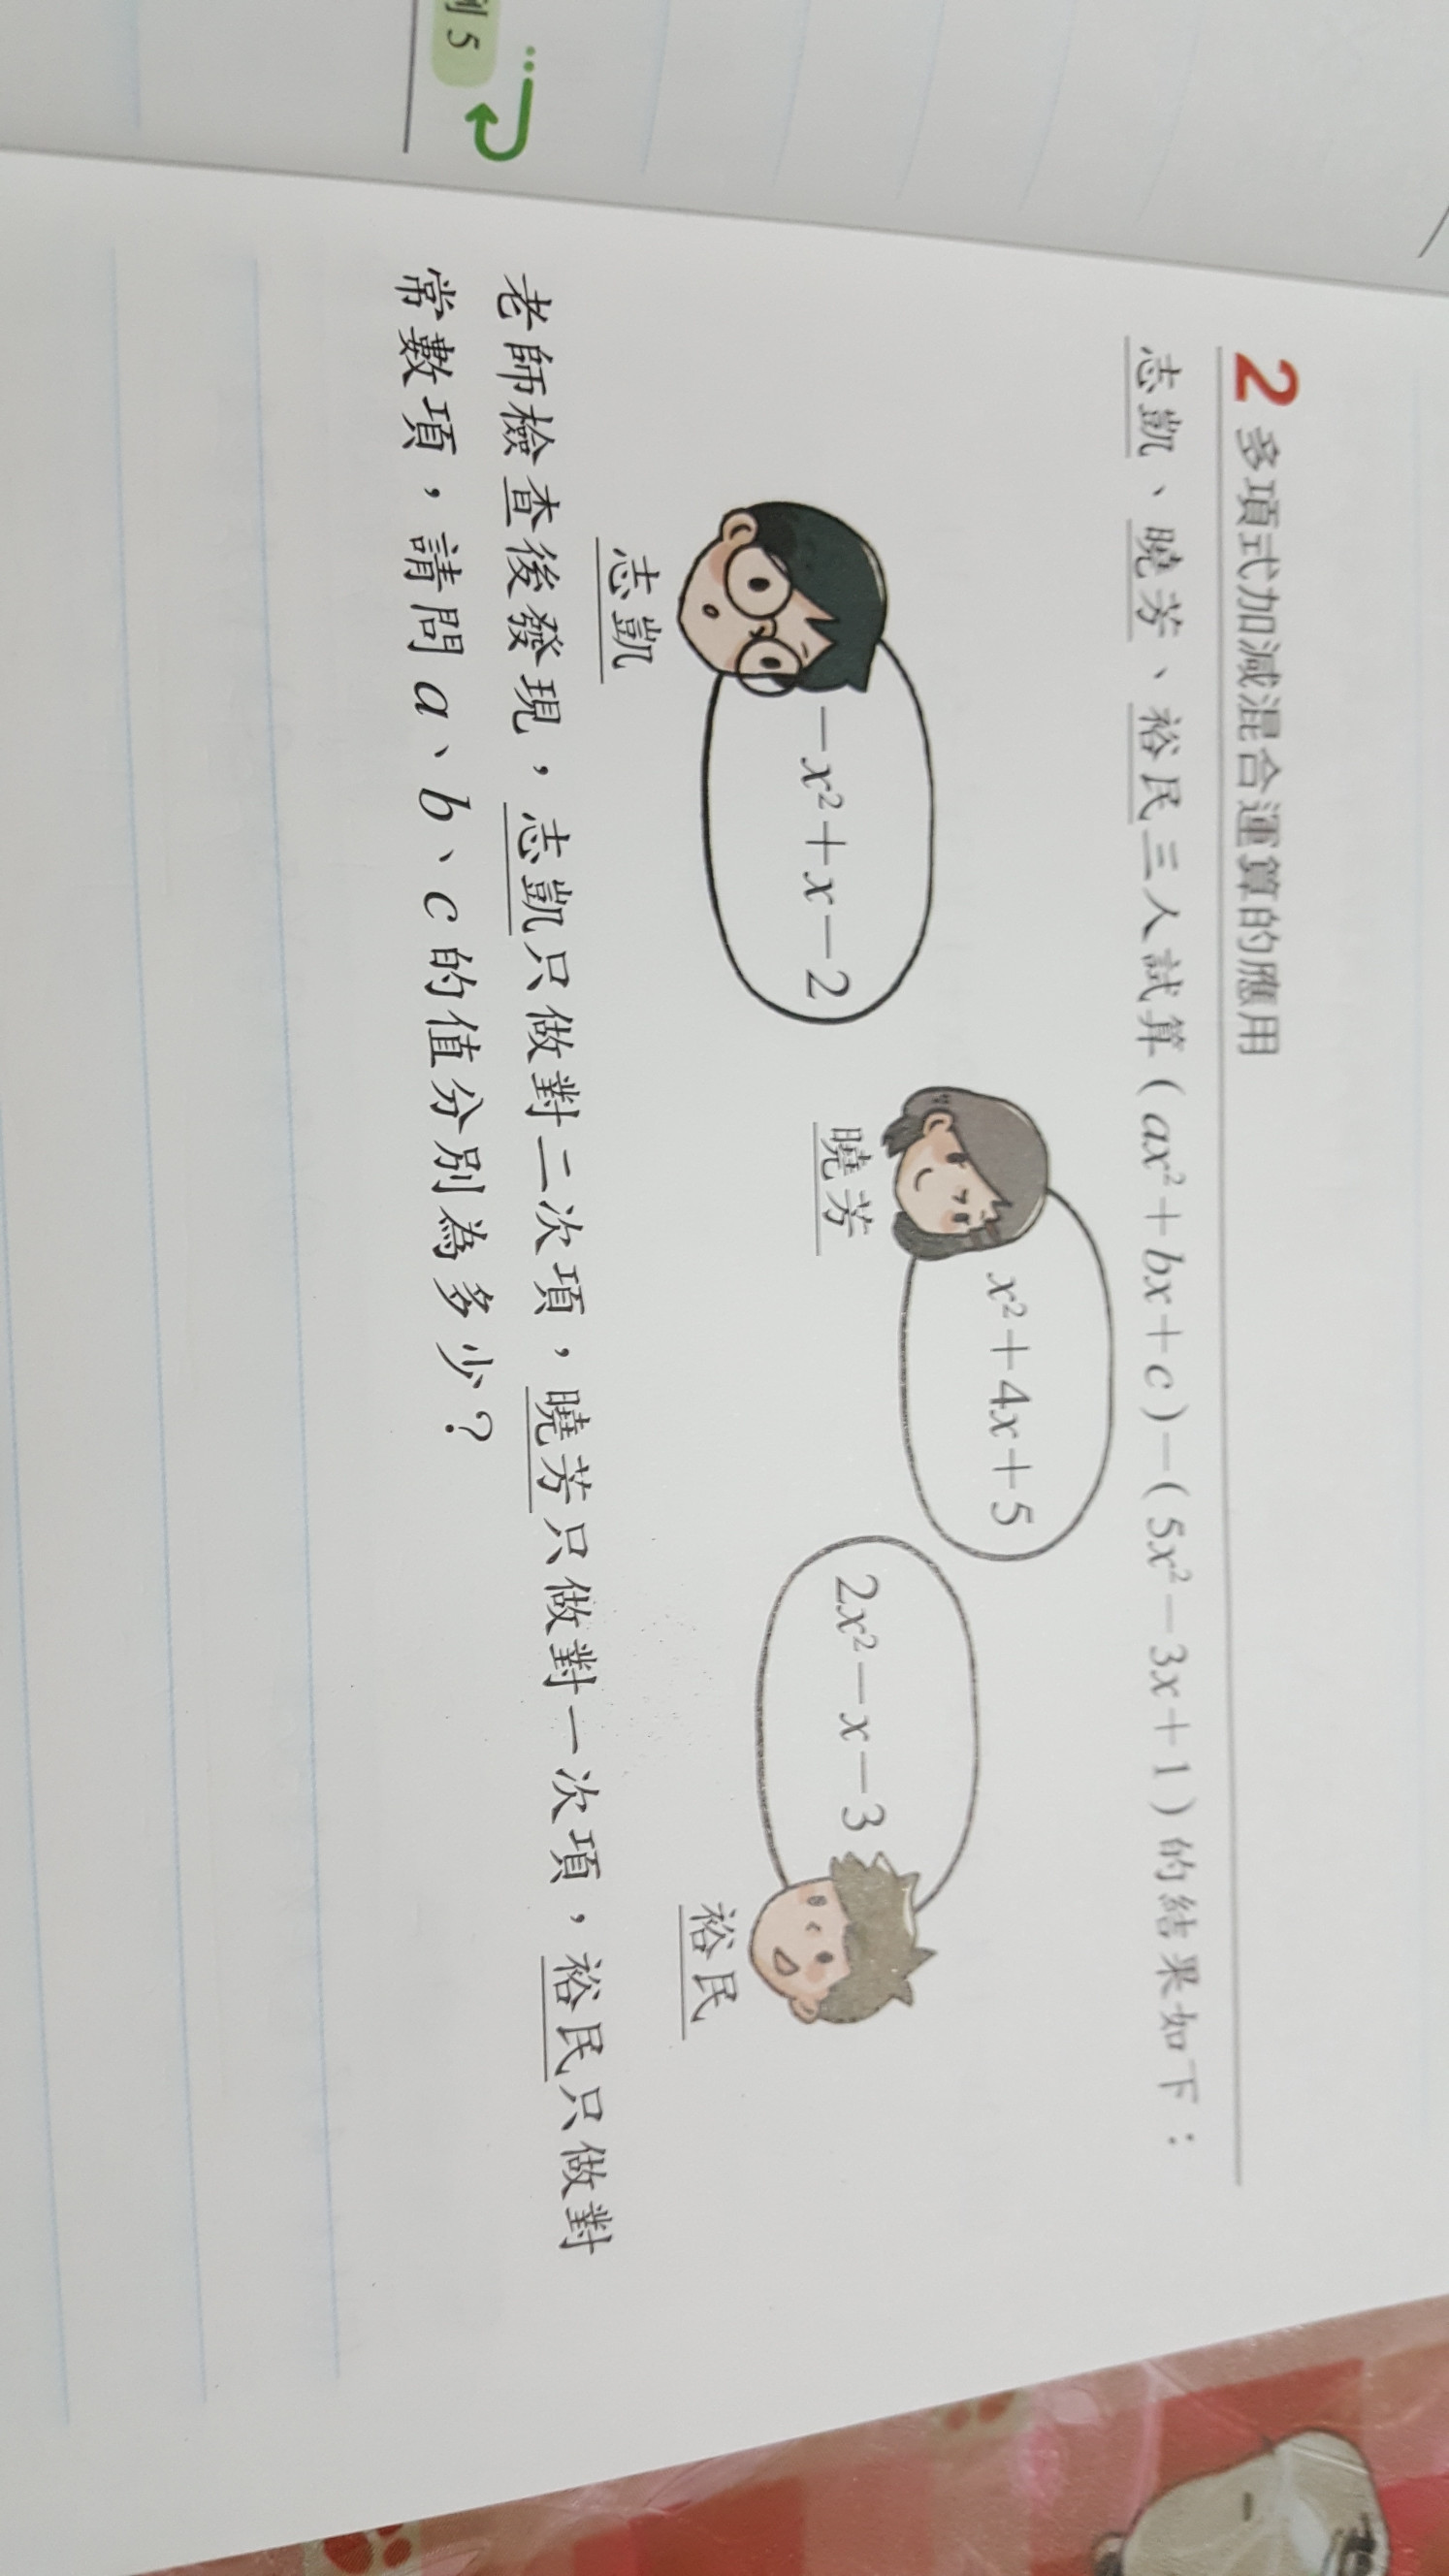 5
2 多項式加減混合運算的應用
志凱、曉芳、裕民三人試算（ax²＋bx＋c）－（5x²－3x＋1）的結果如下：
－x²＋x－2
志凱
x²＋4x＋5
曉芳
2x²－x－3
裕民
老師檢查後發現，志凱只做對二次項，曉芳只做對一次項，裕民只做對
常數項，請問a、b、c的值分別為多少？